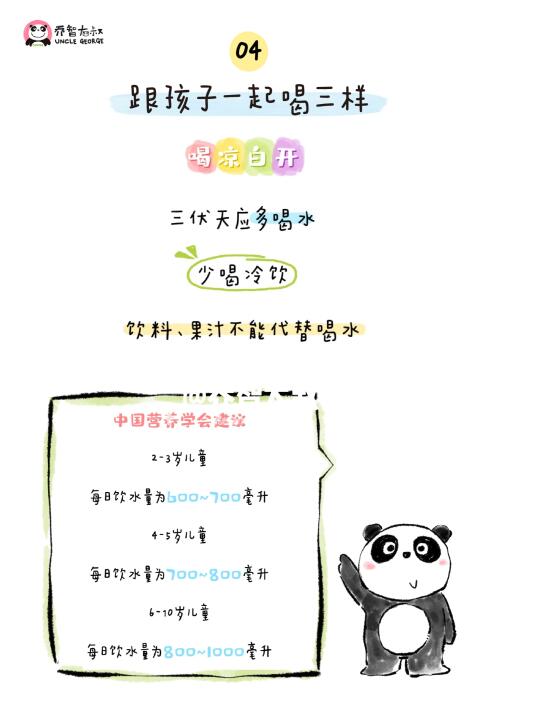 乔智大叔
UNCLE GEORGE
04
跟孩子一起喝三样
喝凉白开
三伏天应多喝水
少喝冷饮
饮料、果汁不能代替喝水
中国营养学会建议
2-3岁儿童
每日饮水量为600~700毫升
4-5岁儿童
每日饮水量为700~800毫升
6-10岁儿童
每日饮水量为800~1000毫升